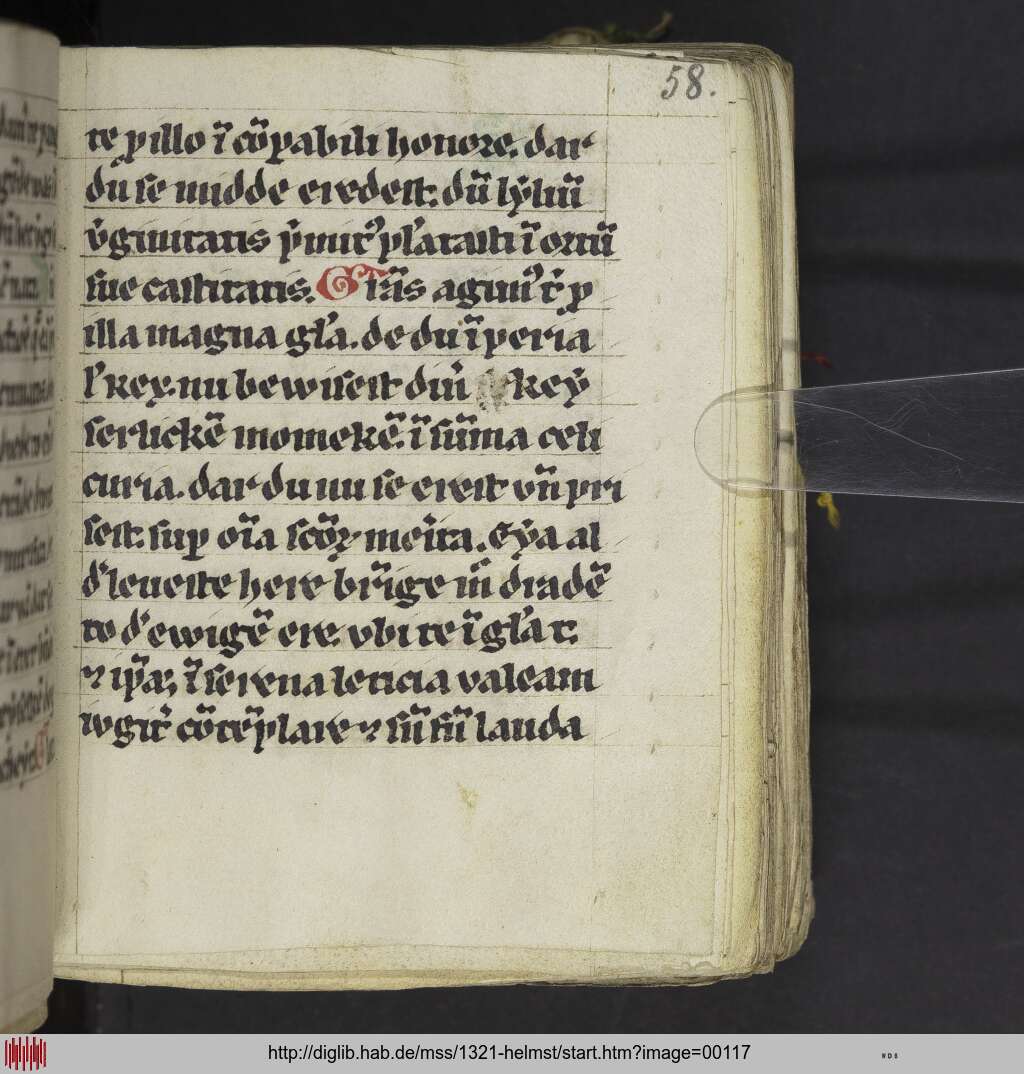 58.
te ꝑ illo ī cōpabili honore. dar
du se midde eredest. dū lyliū
v̓ginitatis p̓mit᷒ pl̓atasti ī ortū
sue castitatis. Gr̄as agim᷒ t̓ ꝑ
illa magna gl̓a. de du īperia
l̓ key. nu bewisest din̄ key
serlickē momekē. ī sūma celi
curia. dar du nu se erest vn̄ pri
sest. suꝑ oīa scōꝝ merita. Eya al
d̓ leueste here brīge m̄ dradē
to d̓ ewigē ere. vbi te ī gl̓a t.
⁊ ip̄aꝫ ī serena leticia valeam
iugit̓ cōtēplare ⁊ sn̄ fin̄ lauda
http://diglib.hab.de/mss/1321-helmst/start.htm?image=00117